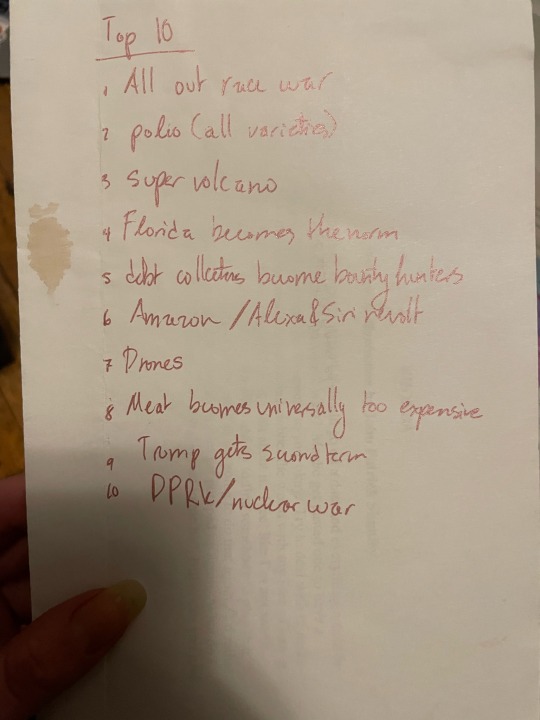 Top 10
1 All out race war
2 polio (all varieties)
3 super volcano
4 Florida becomes the norm
5 debt collectors become bounty hunters
6 Amazon / Alexa & Siri revolt
7 Drones
8 Meat becomes universally too expensive
9 Trump gets second term
10 DPRK/nuclear war